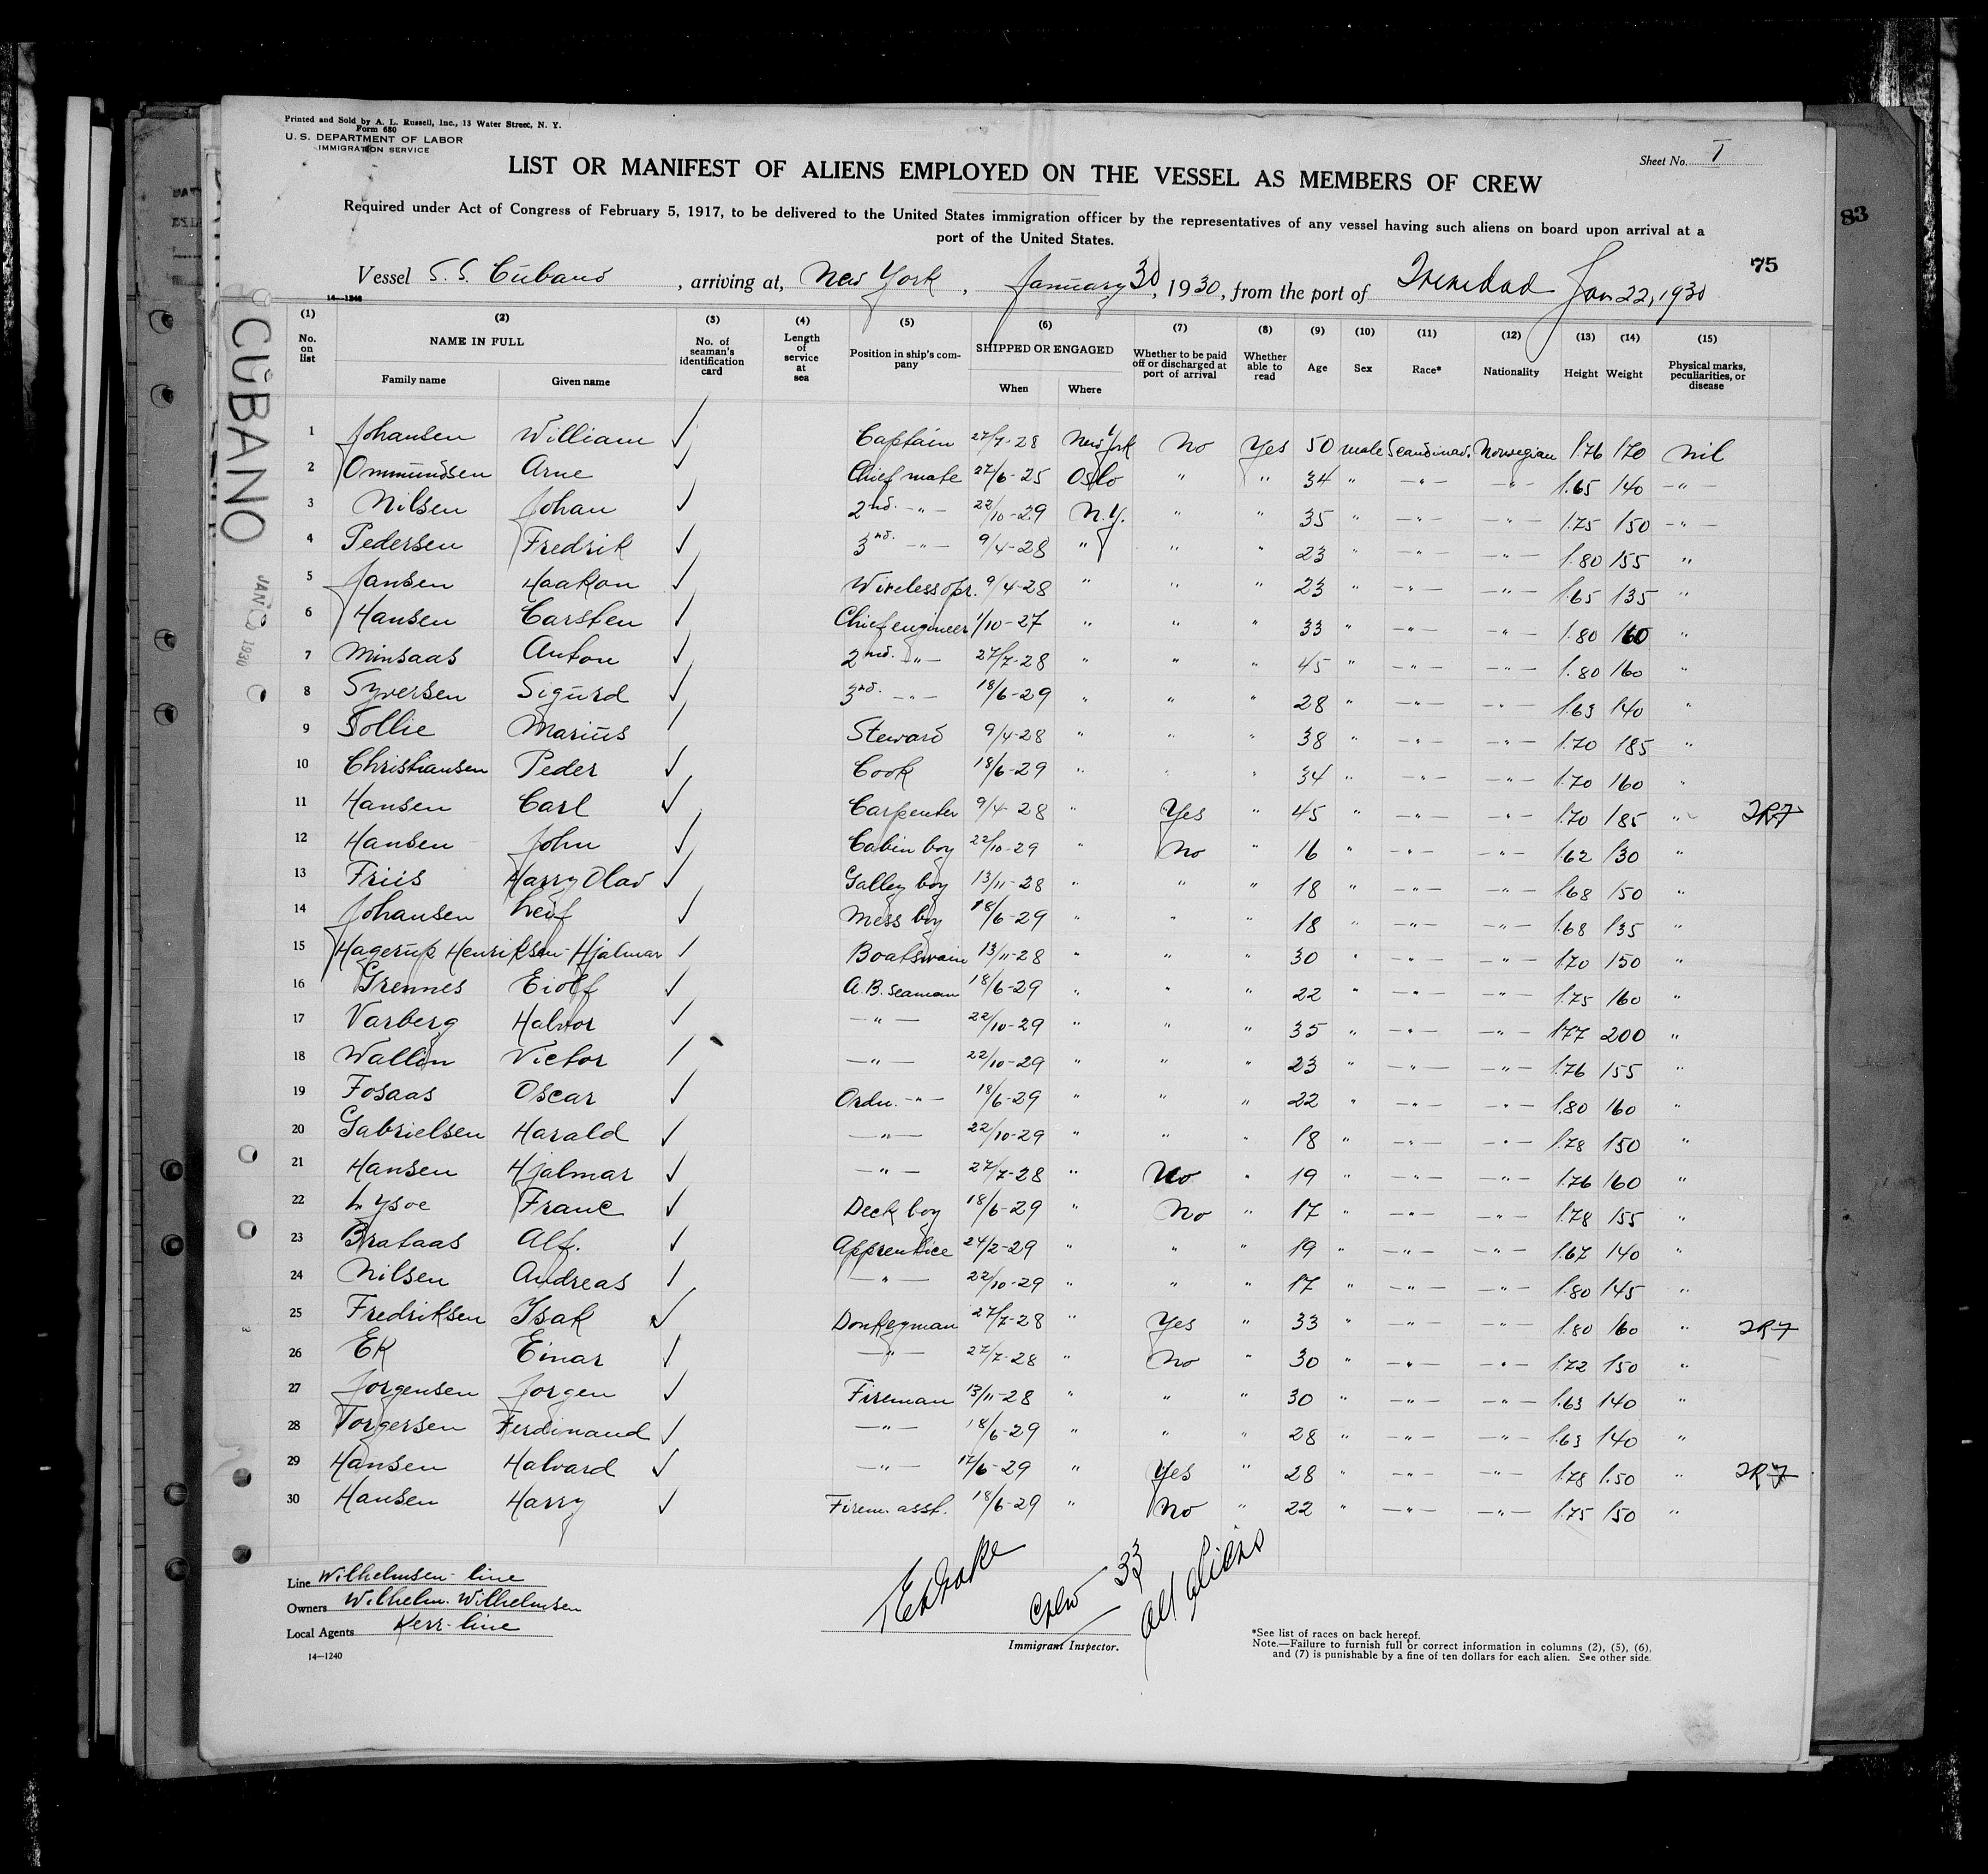 Printed and Sold by A. L. Russell, Inc., 13 Water Street, N. Y.
Form 680
U. S. DEPARTMENT OF LABOR
IMMIGRATION SERVICE
Sheet No. I
LIST OR MANIFEST OF ALIENS EMPLOYED ON THE VESSEL AS MEMBERS OF CREW
83
Required under Act of Congress of February 5, 1917, to be delivered to the United States immigration officer by the representatives of any vessel having such aliens on board upon arrival at a
port of the United States.
75
Vessel S.S. Cubano, arriving at, New York, January 30, 1930, from the port of Trinidad Jan 22, 1930
14—1240
CUBANO
JAN 1930
(1) (2) (3) (4) (5) (6) (7) (8) (9) (10) (11) (12) (13) (14) (15)
No. on list NAME IN FULL Family name Given name No. of seaman's identification card Length of service at sea Position in ship's company SHIPPED OR ENGAGED When Where Whether to be paid off or discharged at port of arrival Whether able to read Age Sex Race* Nationality Height Weight Physical marks, peculiarities, or disease
1 Johansen William ✓ Captain 27/7-28 New York No Yes 50 male Scandinav. Norwegian 1.76 170 nil
2 Ommundsen Arne ✓ Chief mate 27/6-25 Oslo " " 34 " -"- -"- 1.65 140 -"-
3 Nilsen Johan ✓ 2nd. -"- 22/10-29 N.Y. " " 35 " -"- -"- 1.75 150 -"-
4 Pedersen Fredrik ✓ 3rd. -"- 9/4-28 " " " 23 " -"- -"- 1.80 155 "
5 Jansen Haakon ✓ Wireless opr. 9/4-28 " " " 23 " -"- -"- 1.65 135 "
6 Hansen Carsten ✓ Chief engineer 1/10-27 " " " 33 " -"- -"- 1.80 160 "
7 Minsaas Anton ✓ 2nd. -"- 27/7-28 " " " 45 " -"- -"- 1.80 160 "
8 Syversen Sigurd ✓ 3rd. -"- 18/6-29 " " " 28 " -"- -"- 1.63 140 "
9 Sollie Marius ✓ Steward 9/4-28 " " " 38 " -"- -"- 1.70 185 "
10 Christiansen Peder ✓ Cook 18/6-29 " " " 34 " -"- -"- 1.70 160 "
11 Hansen Carl ✓ Carpenter 9/4-28 " Yes " 45 " -"- -"- 1.70 185 "
12 Hansen John ✓ Cabin boy 22/10-29 " No " 16 " -"- -"- 1.62 130 "
13 Friis Harry Olav ✓ Galley boy 13/11-28 " " " 18 " -"- -"- 1.68 150 "
14 Johansen Leif ✓ Mess boy 18/6-29 " " " 18 " -"- -"- 1.68 135 "
15 Hagerup Henriksen-Hjalmar ✓ Boatswain 13/11-28 " " " 30 " -"- -"- 1.70 150 "
16 Grennes Eiolf ✓ A.B. Seaman 18/6-29 " " " 22 " -"- -"- 1.75 160 "
17 Varberg Halvor ✓ -"- 22/10-29 " " " 35 " -"- -"- 1.77 200 "
18 Wallin Victor ✓ -"- 22/10-29 " " " 23 " -"- -"- 1.76 155 "
19 Fosaas Oscar ✓ Ordn. -"- 18/6-29 " " " 22 " -"- -"- 1.80 160 "
20 Gabrielsen Harald ✓ -"- 22/10-29 " " " 18 " -"- -"- 1.78 150 "
21 Hansen Hjalmar ✓ -"- 27/7-28 " No " 19 " -"- -"- 1.76 160 "
22 Lysoe Franc ✓ Deck boy 18/6-29 " No " 17 " -"- -"- 1.78 155 "
23 Brataas Alf. ✓ Apprentice 24/2-29 " " " 19 " -"- -"- 1.67 140 "
24 Nilsen Andreas ✓ -"- 22/10-29 " " " 17 " -"- -"- 1.80 145 "
25 Fredriksen Isak ✓ Donkeyman 27/7-28 " Yes " 33 " -"- -"- 1.80 160 "
26 Ek Einar ✓ -"- 27/7-28 " No " 30 " -"- -"- 1.72 150 "
27 Jorgensen Jorgen ✓ Fireman 13/11-28 " " " 30 " -"- -"- 1.63 140 "
28 Torgersen Ferdinand ✓ -"- 18/6-29 " " " 28 " -"- -"- 1.63 140 "
29 Hansen Halvard ✓ -"- 17/6-29 " Yes " 28 " -"- -"- 1.78 150 "
30 Hansen Harry ✓ Firem. asst. 18/6-29 " No " 22 " -"- -"- 1.75 150 "
Line Wilhelmsen-line
Owners Wilhelm. Wilhelmsen
Local Agents Kerr-line
14—1240
Crew 33
all aliens
Immigrant Inspector.
*See list of races on back hereof.
Note.—Failure to furnish full or correct information in columns (2), (5), (6),
and (7) is punishable by a fine of ten dollars for each alien. See other side.